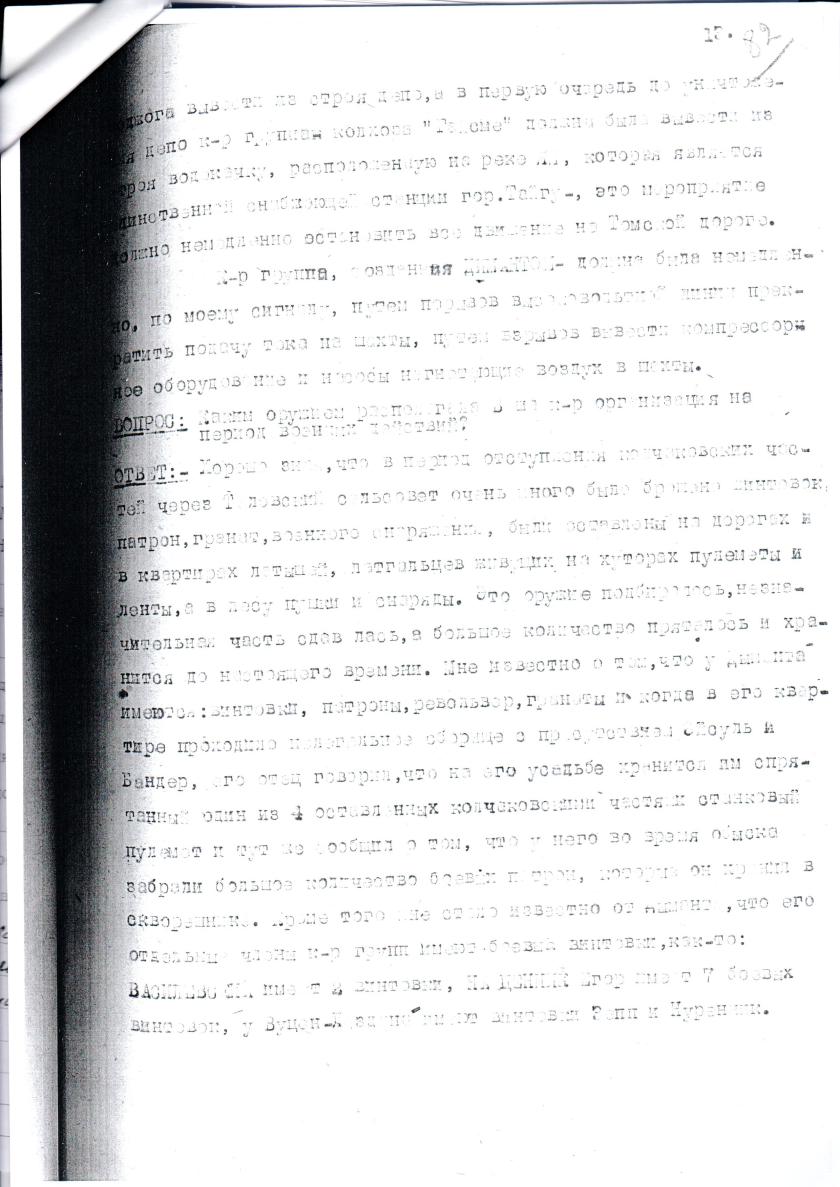 13. 82
вывести из строя депо, а в первую очередь до уничтоже-
депо к-р группы колхоза "Тайсме" должны были вывести из
строя водокачку, расположенную на реке Яя, которая является
единственной снабжающей станции гор.Тайгу-, это мероприятие
должно немедленно остановить все движение по Томской дороге.
К-р группа, созданная ДИМАНТОМ- должна была немедлен-
но, по моему сигналу, путем порывов высоковольтной линии прек-
ратить подачу тока на шахты, путем взрывов вывести компрессорн
ное оборудование и насосы нагнетающие воздух в шахты.
ВОПРОС: Каким оружием располагала в к-р организация на
период военных действий?
ОТВЕТ:- Хорошо знаю,что в период отступления колчаковских час-
тей через сельсовет очень много было брошено винтовок,
патрон,гранат,военного снаряжения, были оставлены на дорогах и
в квартирах латышей, латгальцев живущих на хуторах пулеметы и
ленты,а в лесу пушки и снаряды. Это оружие подбиралось,незна-
чительная часть сдавалась,а большое количество пряталось и хра-
нится до настоящего времени. Мне известно о том,что у Диманта
имеются:винтовки, патроны,револьвер,гранаты и когда в его квар-
тире проходило нелегальное сборище с присутствием и
Бандер, его отец говорил,что на его усадьбе хранится им спря-
танный один из 4 оставленных колчаковскими частями станковый
пулемет и тут же сообщил о том, что у него во время обыска
забрали большое количество боевых патрон, которые он хранил в
скворешнике. Кроме того мне стало известно от Диманта,что его
отдельные члены к-р групп имеют боевые винтовки,как-то:
имеет 2 винтовки, Егор имеет 7 боевых
винтовок, у имеют винтовки Зепп и